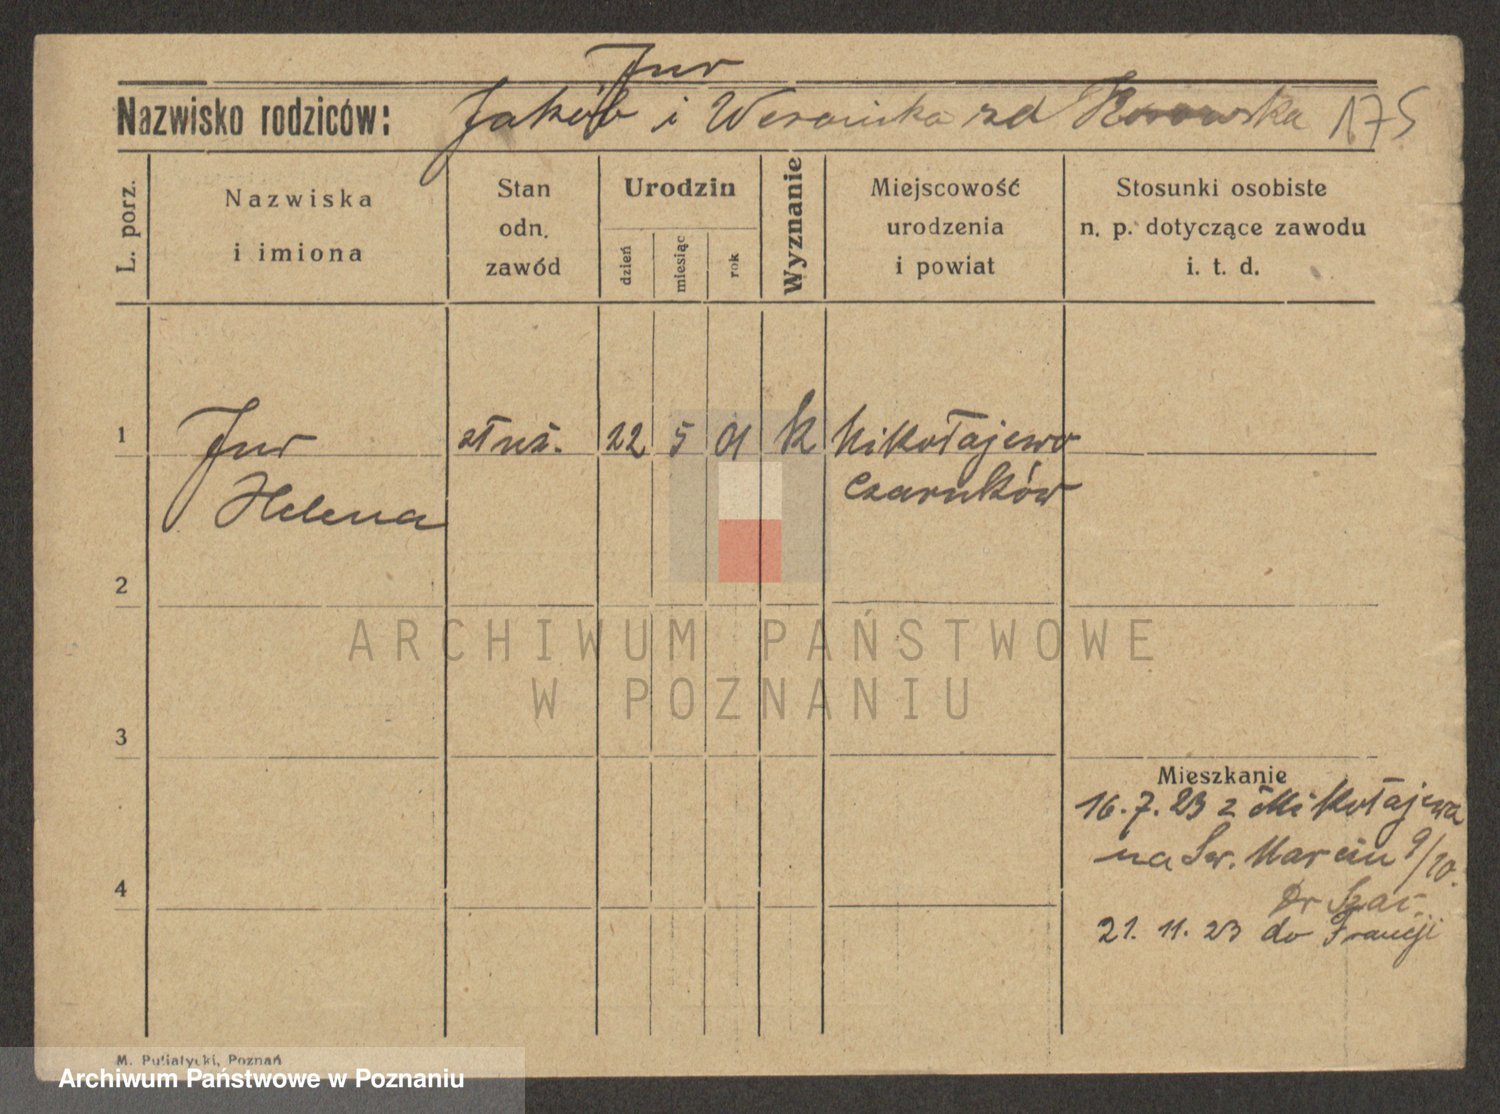 Jur
Nazwisko rodziców: Jakób i Weronika zd 175
L. porz.
Nazwiska i imiona
Stan odn. zawód
Urodzin
dzień
miesiąc
rok
Wyznanie
Miejscowość urodzenia i powiat
Stosunki osobiste n. p. dotyczące zawodu i. t. d.
1 Jur służ. 22 5 01 k Mikołajewo
Helena Czarnków
2
3
4
ARCHIWUM PAŃSTWOWE
W POZNANIU
Mieszkanie
16.7.23 z Mikołajewa
na Św. Marcin 9/10.
Dr
21. 11. 23 do Francji
M. Putiatycki, Poznań
Archiwum Państwowe w Poznaniu